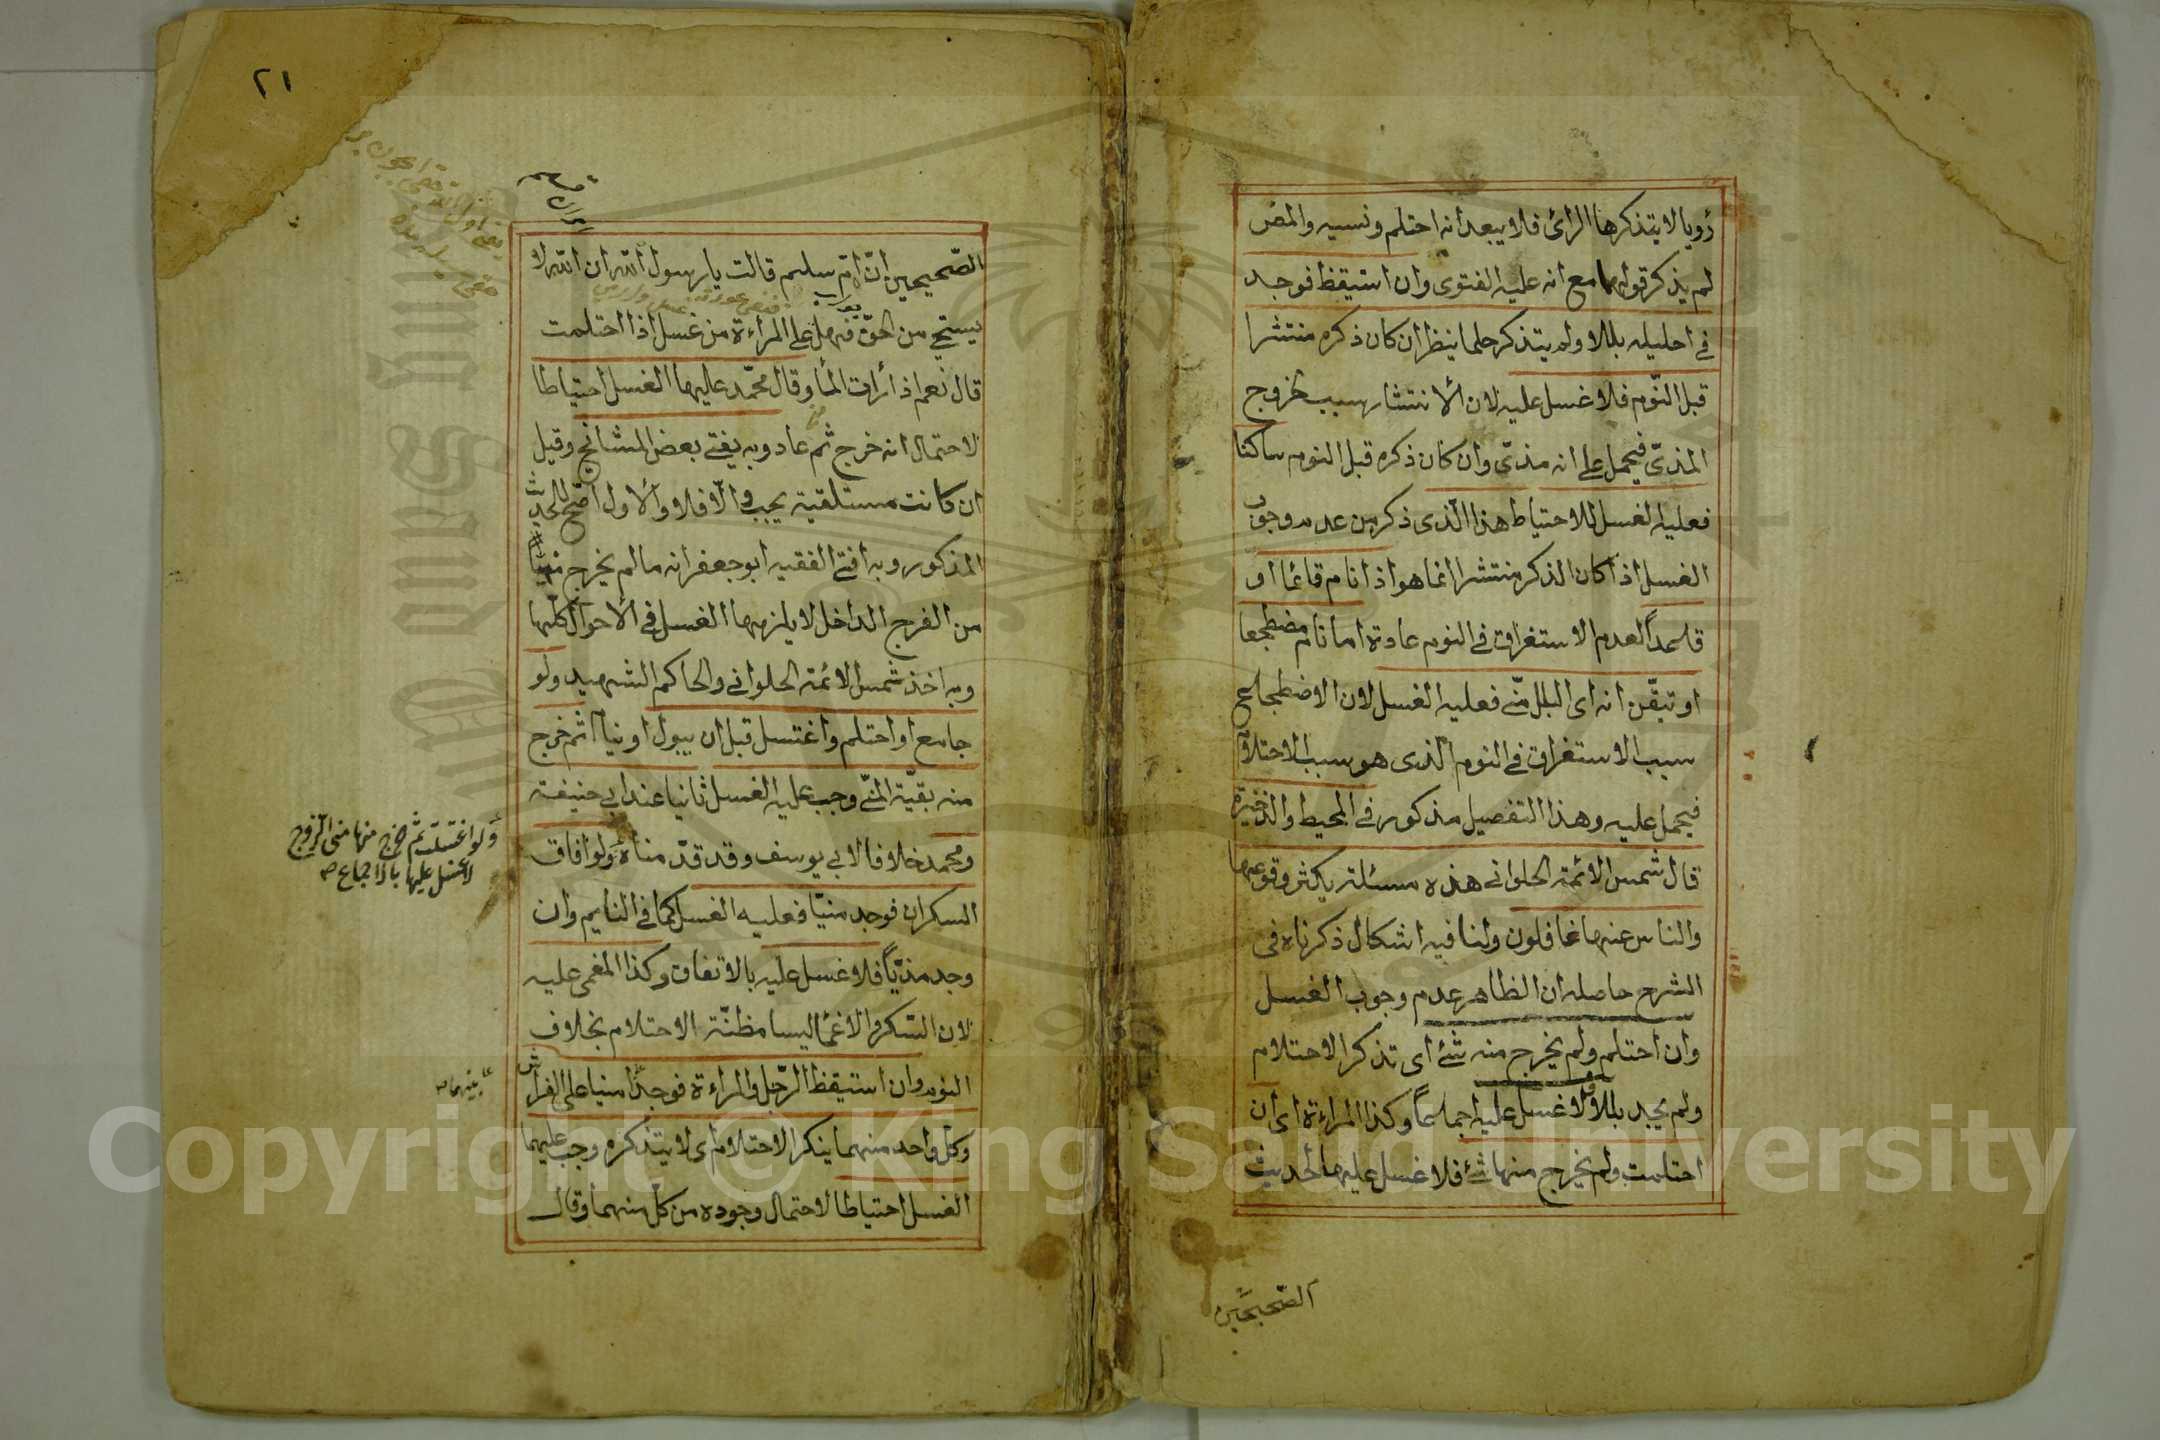 رؤيا لا يتذكرها الرائ فلا يبعد انه احتلم ونسيه والمص
لم يذكر قولهما مع انه عليه الفتوى وان استيقظ فوجد
في احليله بللا ولم يتذكر حلما ينظر ان كان ذكره منتشرا
قبل النّوم فلا غسل عليه لان الانتشار سبب لخروج
المذىّ فيحمل على انه مذىّ وان كان ذكره قبل النوم ساكنا
فعليه الغسل للاحتياط هذا الّذى ذكر من عدم وجوب
الغسل اذا كان الذكر منتشرا انما هو اذا نام قائما او
قاعداً لعدم الاستغراق في النوم عادة اما نام مضطجعا
او تيقّن انه اى البلل منّي فعليه الغسل لان الاضطجاع
سبب الاستغراق في النوم الّذى هو سبب الاحتلام
فيحمل عليه وهذا التفصيل مذكور في المحيط والذخيرة
قال شمس الائمة الحلواني هذه مسئلة يكثر وقوعها
والناس عنها غافلون ولنا فيه اشكال ذكرناه في
الشرح حاصله ان الظاهر عدم وجوب الغسل
وان احتلم ولم يخرج منه شئ اى تذكر الاحتلام
ولم يجد بللا فلا غسل عليه اجماعاً وكذا المراءة اى ان
احتلمت ولم يخرج منها شئ فلا غسل عليها لحديث
الصّحيحين
٢١
الصّحيحين انّ امّ سليم قالت يا رسول الله ان الله لا
يستحي من الحقّ فهل على المراءة من غسل اذا احتلمت
قال نعم اذا رأت الماء وقال محمّد عليها الغسل احتياطا
لاحتمال انه خرج ثم عاد وبه يفتى بعض المشائخ وقيل
ان كانت مستلقية يجب والّا فلا والاول اصح للحديث
المذكور وبه افتى الفقيه ابو جعفر انه ما لم يخرج منيّها
من الفرج الداخل لا يلزمها الغسل في الاحوال كلّها
وبه اخذ شمس الائمة الحلواني والحاكم الشهيد ولو
جامع او احتلم واغتسل قبل ان يبول او ينام ثم خرج
منه بقيّة المنّي وجب عليه الغسل ثانيا عند ابي حنيفة
ومحمد خلافا لابي يوسف وقد قدّمناه ولو افاق
السكران فوجد منيّا فعليه الغسل كما في النايم وان
وجد مذيّاً فلا غسل عليه بالاتفاق وكذا المغمى عليه
لان السّكر والاغما ليسا مظنّة الاحتلام بخلاف
النوم وان استيقظ الرّجل والمراءة فوجدا منيا على الفراش
وكل واحد منهما ينكر الاحتلام اى لا يتذكره وجب عليهما
الغسل احتياطا لاحتمال وجوده من كلّ منهما وقال
ولو اغتسلت ثم خرج منها منى الزوج
لا غسل عليها بالاجماع صح
Copyright © King Saud University